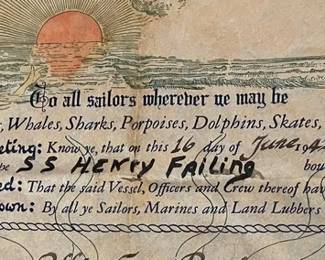 To all sailors wherever ye may be
, Whales, Sharks, Porpoises, Dolphins, Skates,
eting: Know ye, that on this 16 day of June, 194
he SS HENRY FAILING bou
ed: That the said Vessel, Officers and Crew thereof hav
own: By all ye Sailors, Marines and Land Lubbers